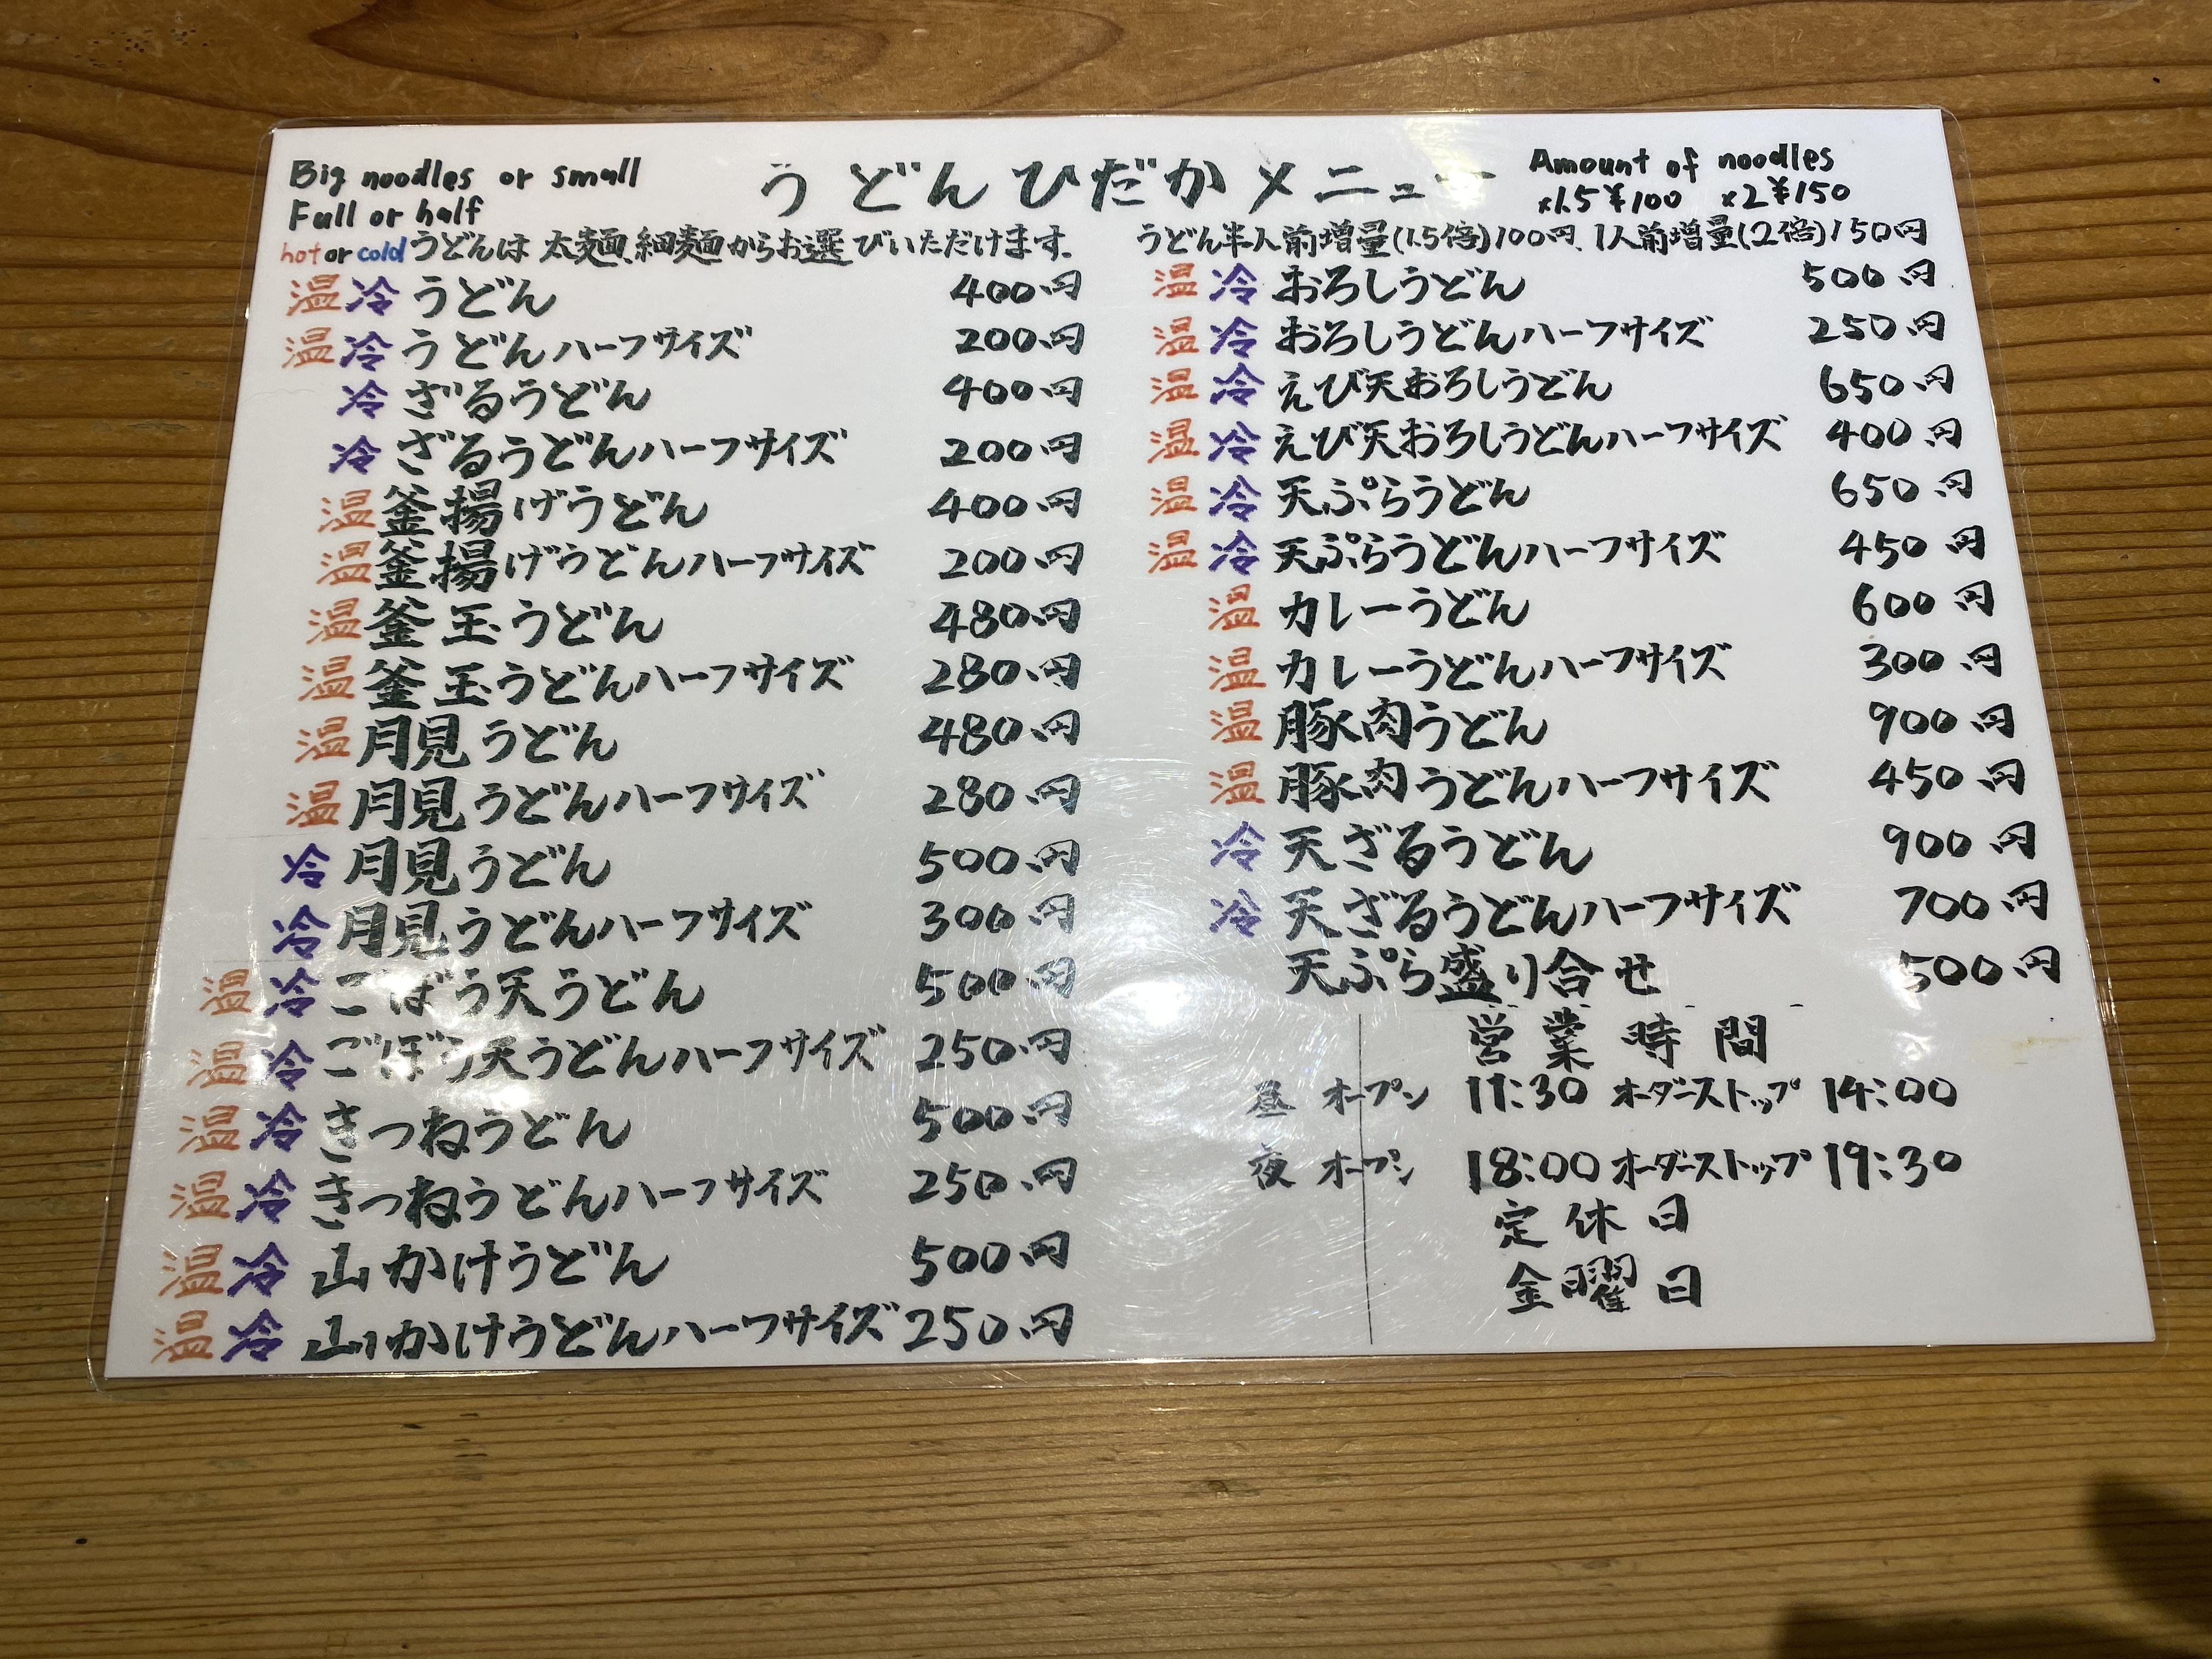 Big noodles or small
Full or half
うどんひだかメニュー
Amount of noodles
×1.5 ¥100 ×2 ¥150
hot or cold うどんは 太麺、細麺からお選びいただけます。
うどん半人前増量(1.5倍)100円、1人前増量(2倍)150円
温 冷 うどん 400円
温 冷 うどんハーフサイズ 200円
冷 ざるうどん 400円
冷 ざるうどんハーフサイズ 200円
温 釜揚げうどん 400円
温 釜揚げうどんハーフサイズ 200円
温 釜玉うどん 480円
温 釜玉うどんハーフサイズ 280円
温 月見うどん 480円
温 月見うどんハーフサイズ 280円
冷 月見うどん 500円
冷 月見うどんハーフサイズ 300円
温 冷 ごぼう天うどん 500円
温 冷 ごぼう天うどんハーフサイズ 250円
温 冷 きつねうどん 500円
温 冷 きつねうどんハーフサイズ 250円
温 冷 山かけうどん 500円
温 冷 山かけうどんハーフサイズ 250円
温 冷 おろしうどん 500円
温 冷 おろしうどんハーフサイズ 250円
温 冷 えび天おろしうどん 650円
温 冷 えび天おろしうどんハーフサイズ 400円
温 冷 天ぷらうどん 650円
温 冷 天ぷらうどんハーフサイズ 450円
温 カレーうどん 600円
温 カレーうどんハーフサイズ 300円
温 豚肉うどん 900円
温 豚肉うどんハーフサイズ 450円
冷 天ざるうどん 900円
冷 天ざるうどんハーフサイズ 700円
天ぷら盛り合せ 500円
営業時間
昼 オープン 11:30 オーダーストップ 14:00
夜 オープン 18:00 オーダーストップ 19:30
定休日
金曜日